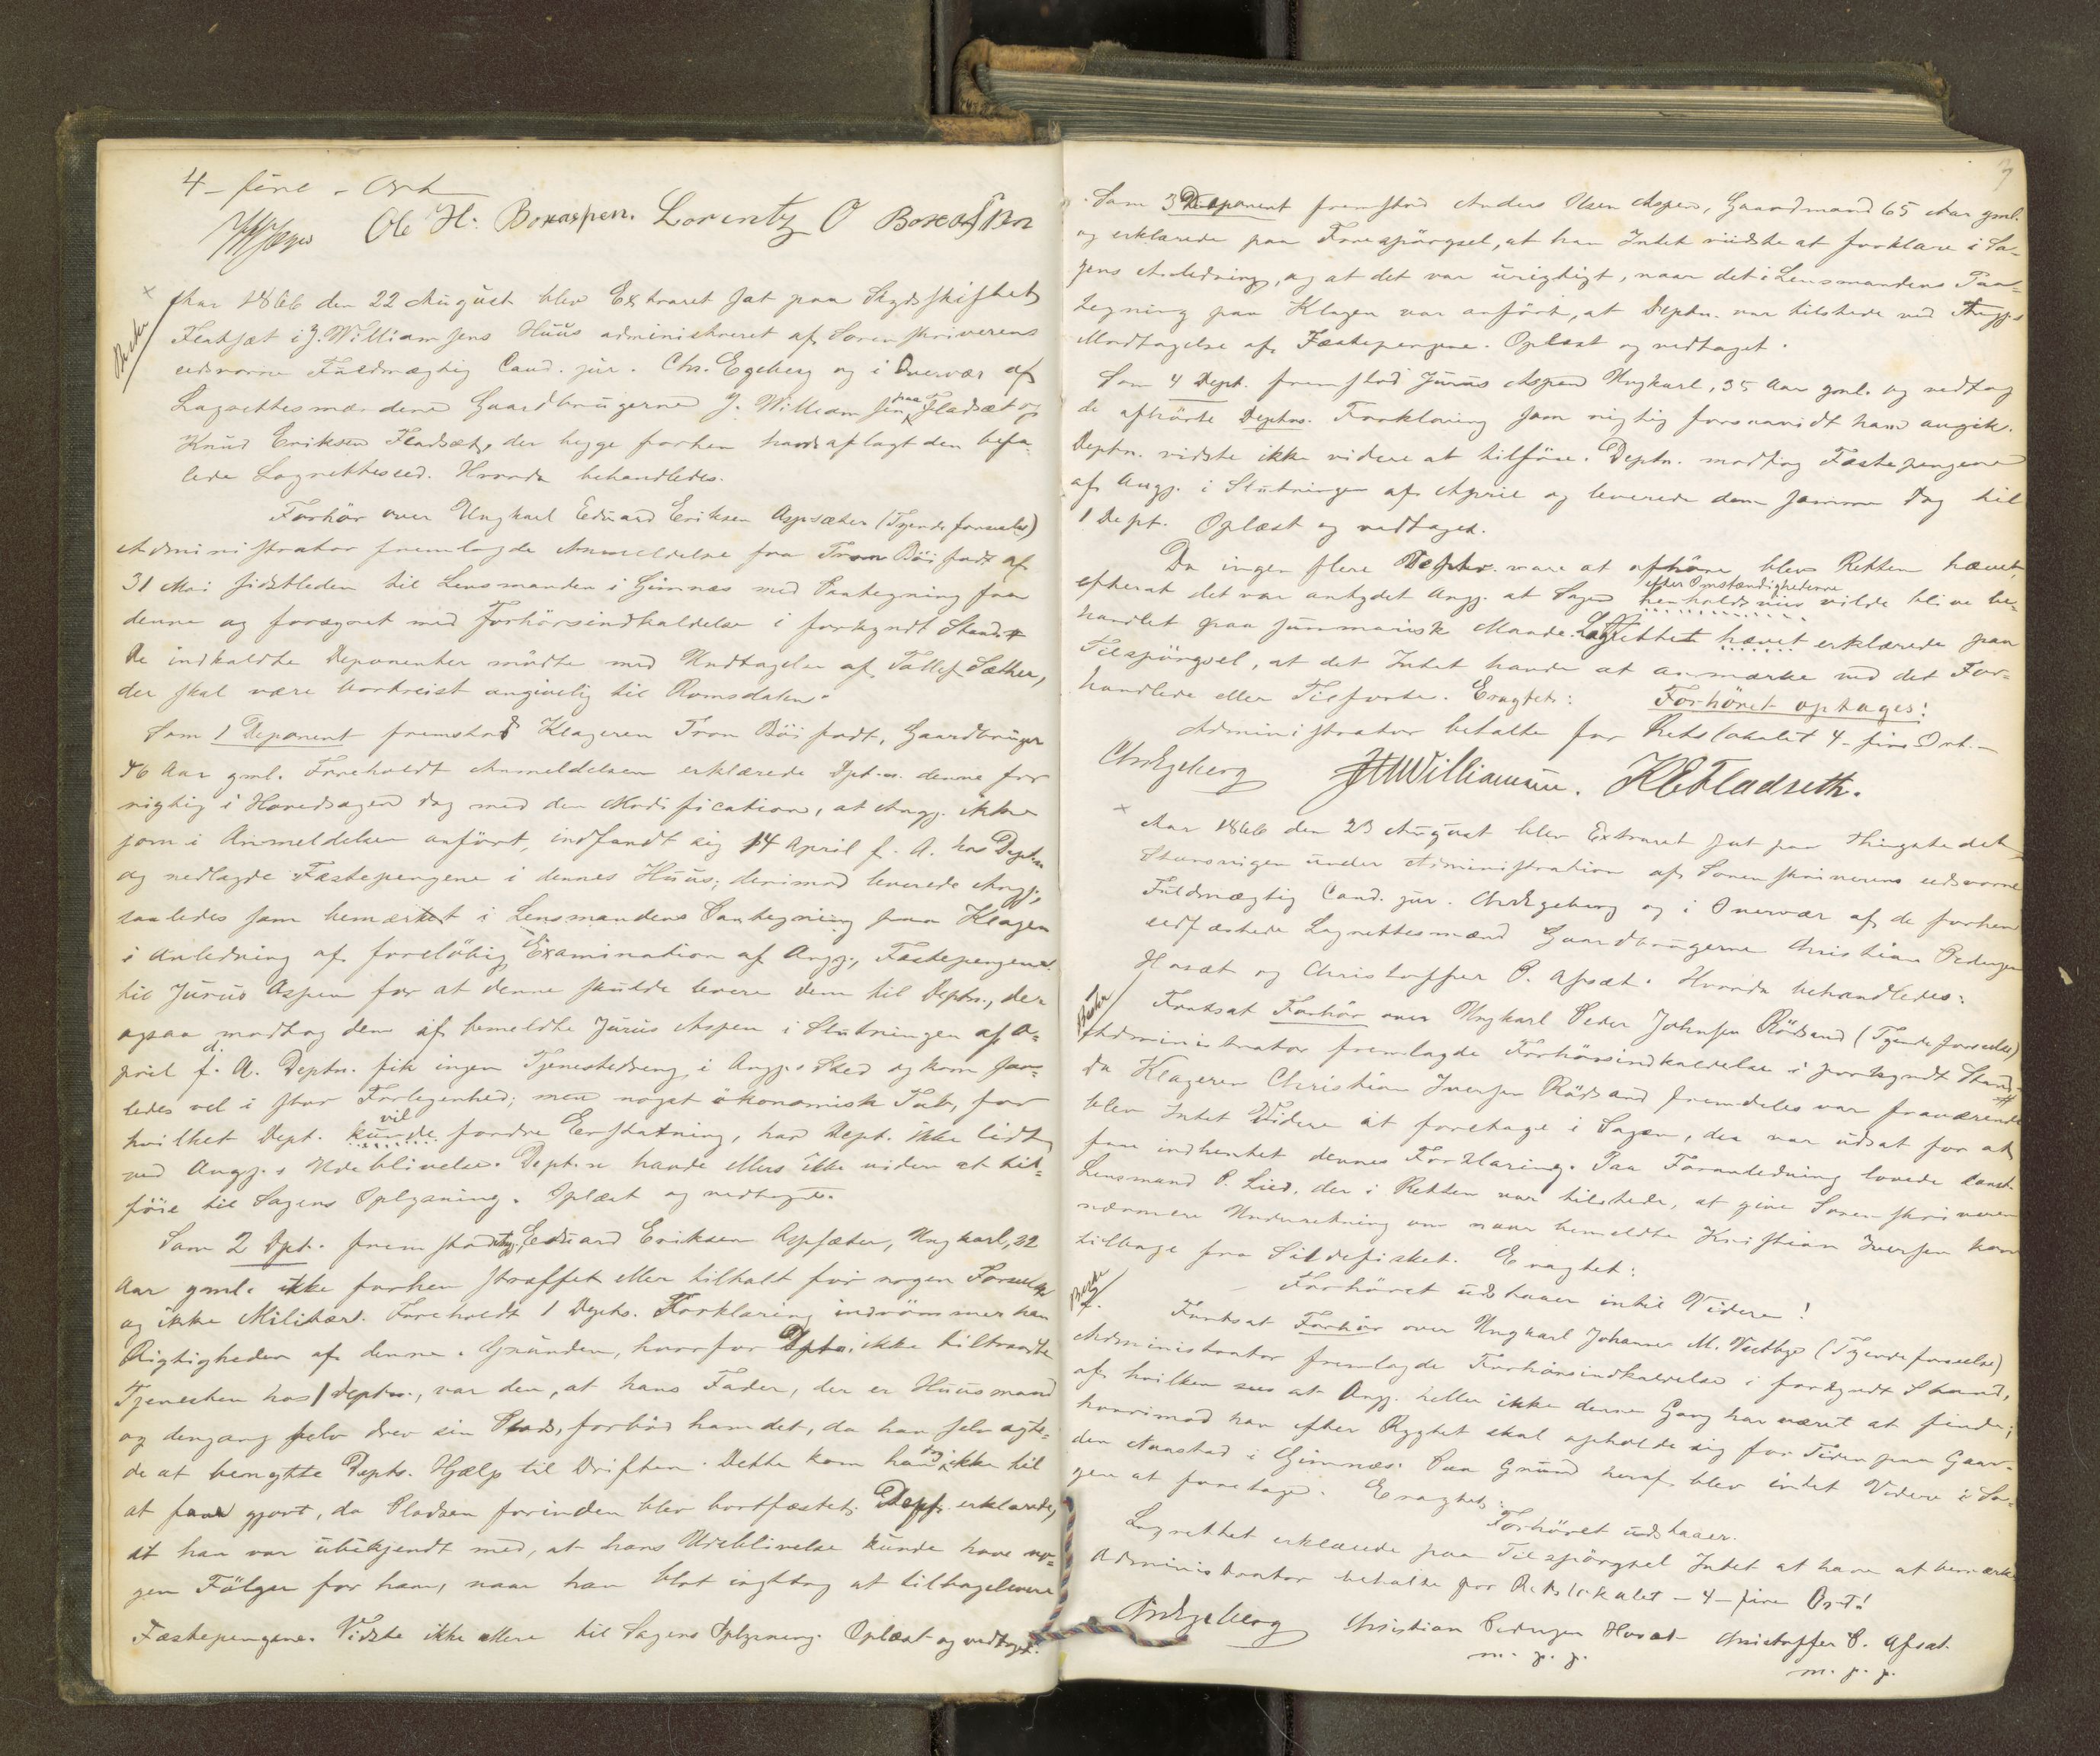 4 - fire - Ort
Ole H. Boxaspen. Lorentz O Boxaspen
Aar 1866 den 22 August blev Extraret sat paa Skydsskiftet
Fladsæt i J. Williamsens Huus administreret af Sorenskriverens
edsvorne Fuldmægtig Cand. jur. Chr. Egeberg og i Overvær af
Lagrettesmændene Gaardbrugerne J. Williamsen paa Fladsæt og
Knud Eriksen Fladsæt, der begge forhen havde aflagt den befa-
lede Lagrettesed. Hvorda behandledes.
Forhör over Ungkarl Eduard Eriksen Aspsæter (Tyendeforseelse)
Administrator fremlagde Anmeldelse fra Tron Böifodt af
31 Mai sidstleden til Lensmanden i Gimnæs med Paategning fra
denne og forsynet med Forhörsindkaldelse i forkyndt Stand.
De indkaldte Deponenter mödte med Undtagelse af Tollef Sæther,
der skal være bortreist angivelig til Romsdalen.
Som 1 Deponent fremstod Klageren Tron Böifodt, Gaardbruger
46 Aar gml. Foreholdt Anmeldelsen erklærede Dpt.n. denne for
rigtig i Hovedsagen dog med den Modification, at Angj. ikke
som i Anmeldelsen anført, indfandt sig 14 April f. A. hos Dept.n
og nedlagde Fæstepengene i dennes Huus; derimod leverede Angj.,
saaledes som bemærket i Lensmandens Paategning paa Klagen
i Anledning af forelöbig Examination af Angj., Fæstepengene
til Jurus Aspen for at denne skulde levere dem til Deptn., der
ogsaa modtog dem af bemeldte Jurus Aspen i Slutningen af A-
pril d. A. Deptn. fik ingen Tjenestedreng i Angj.s Sted og kom saa-
ledes vel i stor Forlegenhed; men noget ökonomisk Tab, for
hvilket Dept. kunde vil fordre Erstatning, har Dept. ikke lidt
ved Angj.s Udeblivelse. Dept.n havde ellers ikke videre at til-
föie til Sagens Oplysning. Oplæst og vedtaget.
Som 2 Dpt. fremstod Angj. Eduard Eriksen Aspsæter, Ungkarl, 22
Aar gml. ikke forhen straffet eller tiltalt for nogen Forseelse
og ikke Militær. Foreholdt 1 Depts. Forklaring indrömmer han
Rigtigheden af denne. Grunden, hvorfor Dptn. ikke tiltraadte
Tjenesten hos 1 Deptn., var den, at hans Fader, der er Huusmand
og dengang selv drev sin Plads, forböd ham det, da han selv agte-
de at benytte Depts. Hjælp til Driften. Dette kom han dog ikke til
at faae gjort, da Pladsen forinden blev bortfæstet. Dept. erklærede,
at han var ubekjendt med, at hans Udeblivelse kunde have no-
gen Fölger for ham, naar han blot iagttog at tilbagelevere
Fæstepengene. Vidste ikke mere til Sagens Oplysning. Oplæst og vedtaget.
7
Som 3 Deponent fremstod Anders Olsen Aspen, Gaardmand 65 Aar gml.
og erklærede paa Forespörgsel, at han Intet vidste at forklare i Sa-
gens Anledning, og at det var urigtigt, naar det i Lensmandens Paa-
tegning paa Klagen var anfört, at Deptn. var tilstede ved Angj.s
Modtagelse af Fæstepengene. Oplæst og vedtaget.
Som 4 Dept. fremstod Jurus Aspen Ungkarl, 35 Aar gml. og vedtog
de afhörte Deptns. Forklaring som rigtig forsaavidt ham angik.
Deptn. vidste ikke videre at tilföie. Deptn. modtog Fæstepengene
af Angj. i Slutningen af April og leverede dem samme Dag til
1 Dept. Oplæst og vedtaget.
Da ingen flere Deptr. vare at afhöre blev Retten hævet,
efterat det var antydet Angj. at Sagen efter Omstændighederne vilde blive be-
handlet paa summarisk Maade. Lagrettet hævet erklærede paa
Tilspörgsel, at det Intet havde at anmærke ved det For-
handlede eller Tilförte. Eragtet: Forhöret optages!
Administrator betalte for Retslokalet 4 - fire Ort. -
ChrEgeberg JWilliamsen. KEFladseth.
Aar 1866 den 23 August blev Extraret sat paa Thingstedet
Stensvigen under Administration af Sorenskriverens edsvorne
Fuldmægtig Cand. jur. ChrEgeberg og i Overvær af de forhen
edfæstede Lagrettesmænd Gaardbrugerne Christian Pedersen
Hosæt og Christopher P. Afsæt. Hvorda behandledes:
Fortsat Forhör over Ungkarl Peder Johnsen Rödsand (Tyendeforseelse)
Administrator fremlagde Forhörsindkaldelse i forkyndt Stand.
Da Klageren Christian Iversen Rödsand fremdeles var fraværende
blev Intet Videre at foretage i Sagen, der var udsat for at
faae indhentet dennes Forklaring. Paa Foranledning lovede Const.
Lensmand P. Lied, der i Retten var tilstede, at give Sorenskriveren
nærmere Underretning om naar bemeldte Kristian Iversen kom
tilbage fra Sildefisket. Eragtet:
Forhöret udstaaer intil Videre!
Fortsat Forhör over Ungkarl Johannes M. Vaatbye (Tyendeforseelse)
Administrator fremlagde Forhörsindkaldelse i forkyndt Stand,
af hvilken sees at Angj. heller ikke denne Gang har været at finde;
hvorimod han efter Rygtet skal opholde sig for Tiden paa Gaar-
den Naastad i Gimnæs. Paa Grund heraf blev intet Videre i Sa-
gen at foretage. Eragtet:
Forhöret udstaaer.
Lagrettet erklærede paa Tilspörgsel Intet at have at bemærke
Administrator betalte for Retslokalet - 4 - fire Ort!
ChrEgeberg Christian Pedersen Hosæt Christoffer P. Afsæt.
m. p. p. m. p. p.